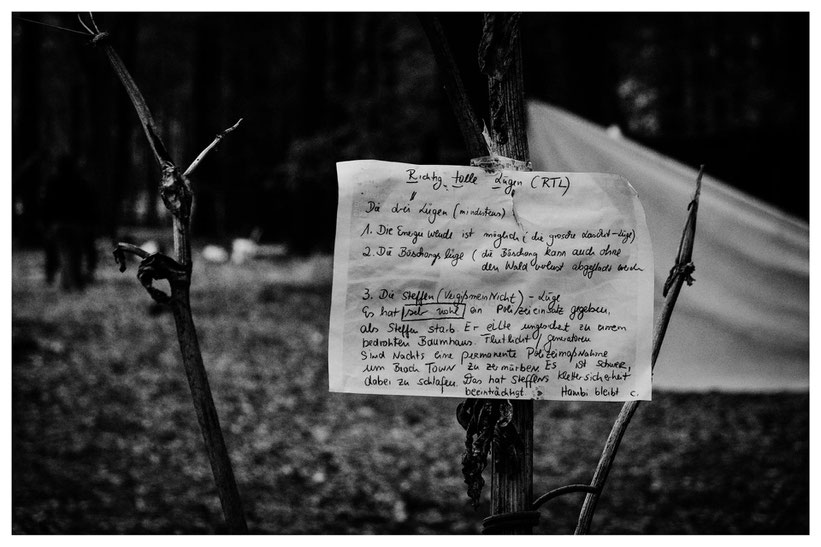 Richtig tolle Lügen (RTL)
Die drei Lügen (mindestens)
1. Die Energie Wende ist möglich ( die grosse Laschet-Lüge)
2. Die Böschungs lüge ( die Böschung kann auch ohne
den Wald verlust abgeflacht werden
3. Die Steffen (Vergißmein Nicht) - Lüge
Es hat sehr wohl ein Polizeieinsatz gegeben,
als Steffen starb. Er eilte ungesichert zu einem
bedrohten Baumhaus. Flutlicht / generatoren
Sind Nachts eine permanente Polizeimaßnahme
um Beach Town zu zermürben. Es ist schwer,
dabei zu schlafen. Das hat Steffens Klettersicherheit
beeinträchtigt. Hambi bleibt